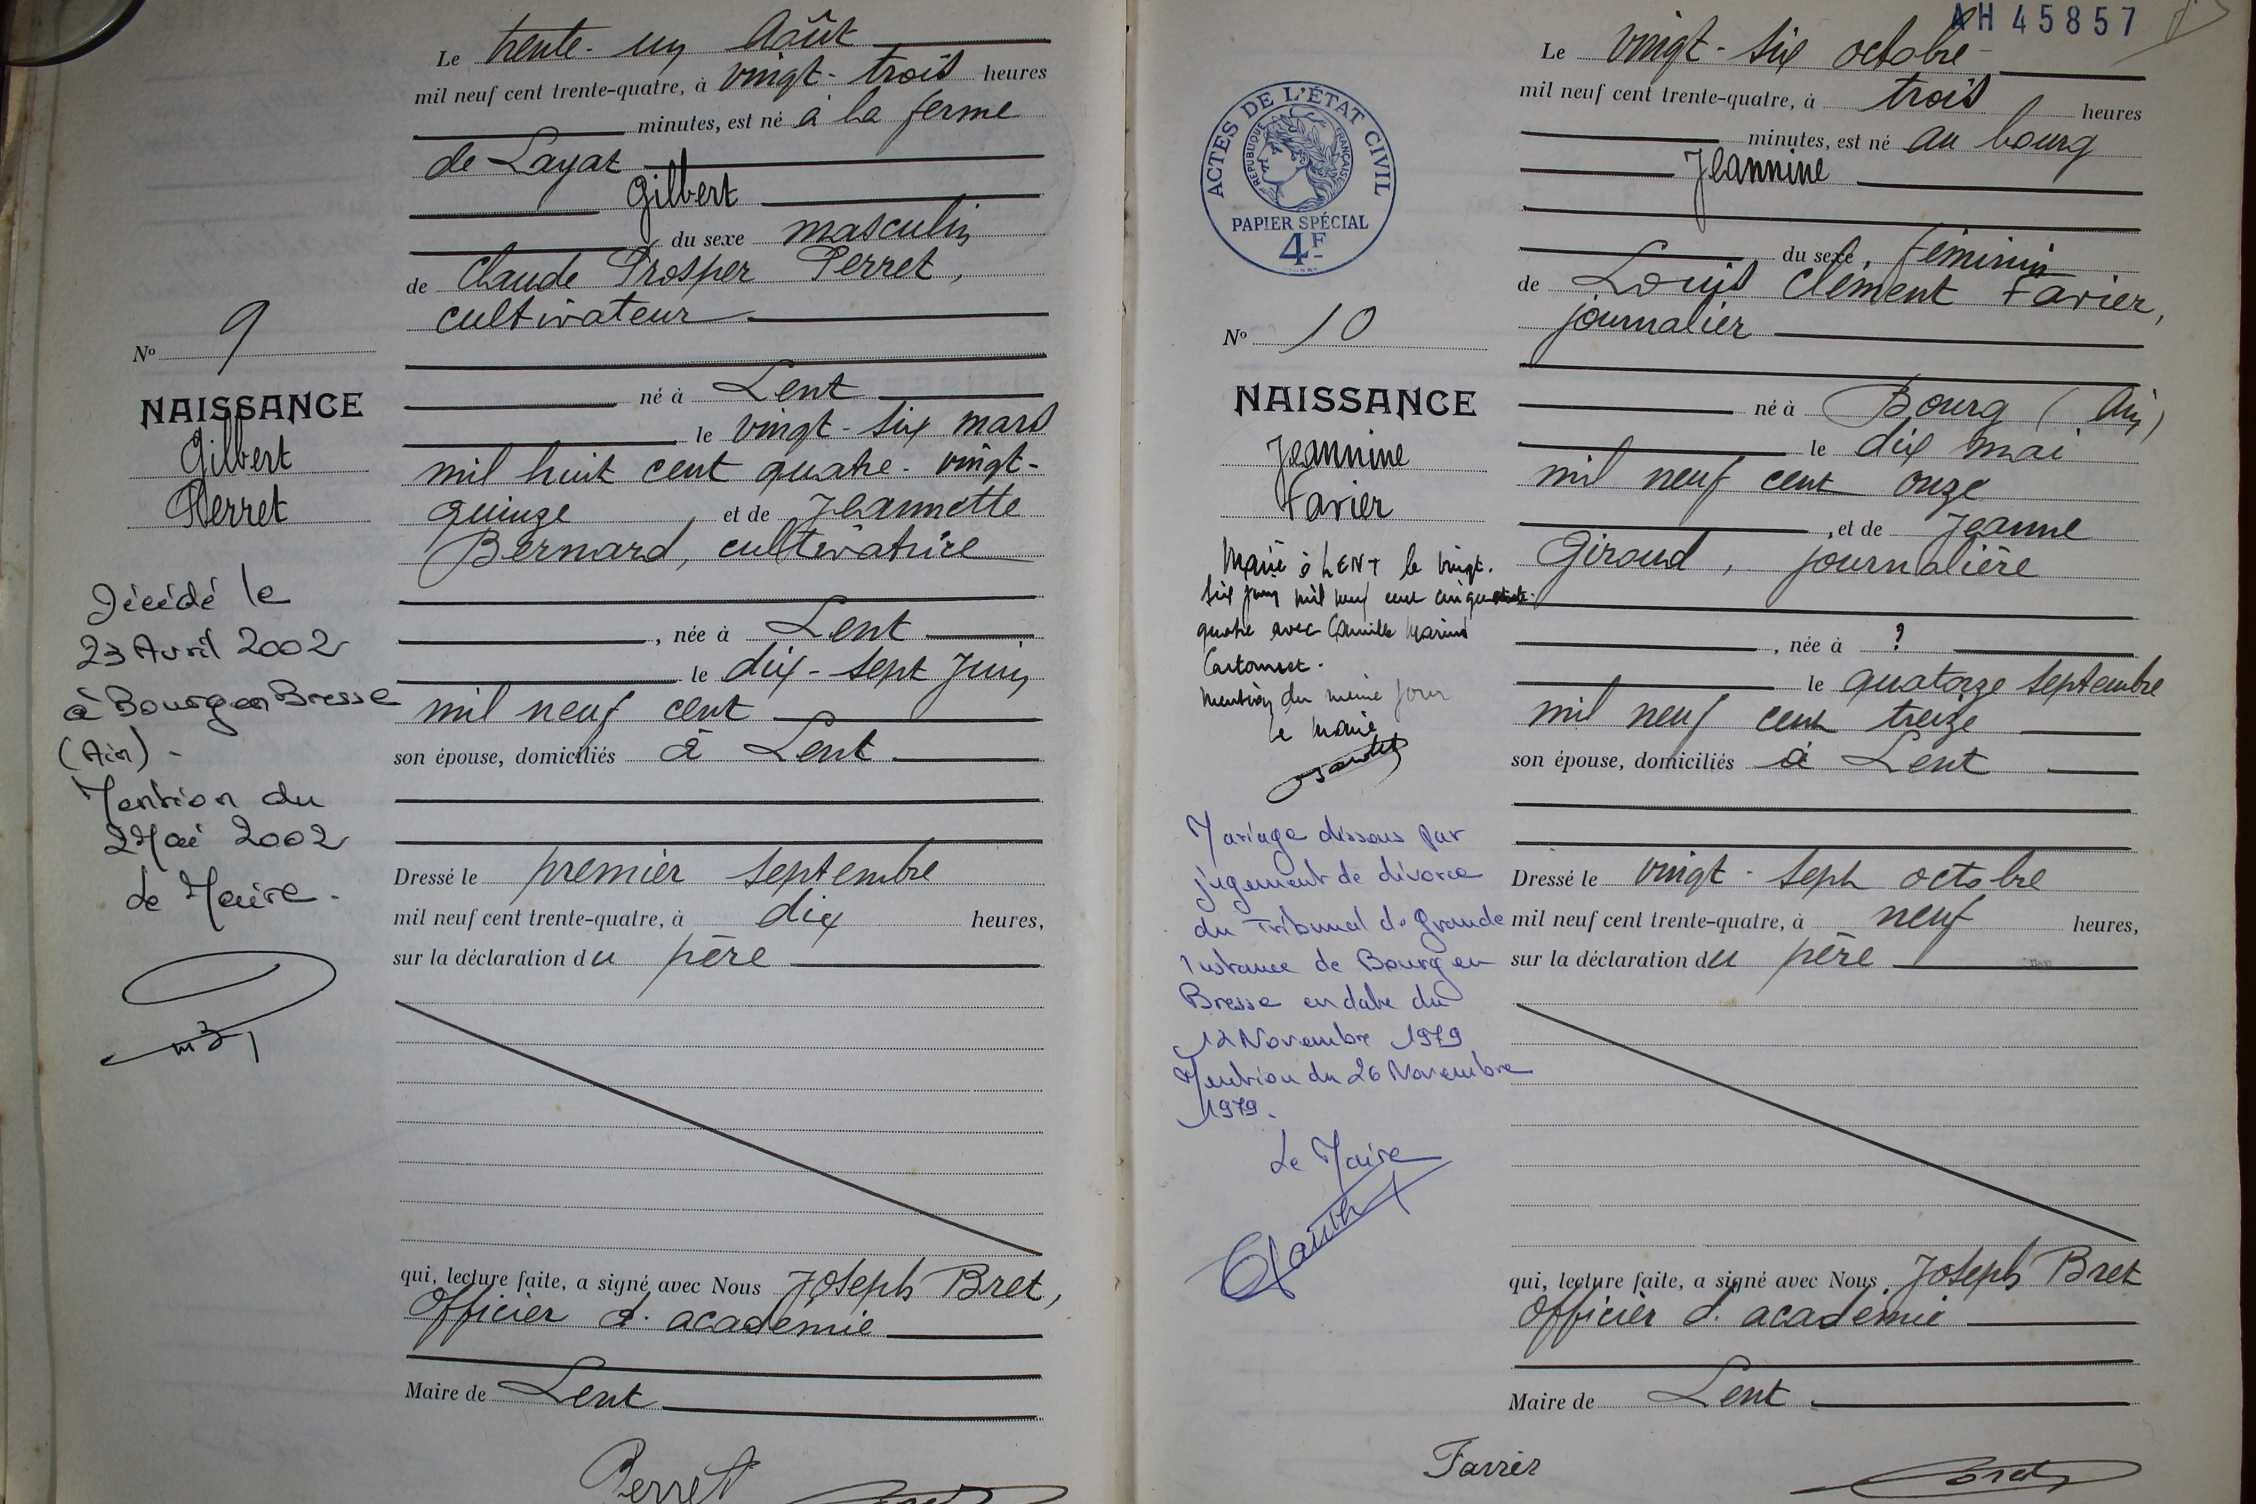 Le trente-un Août
mil neuf cent trente-quatre, à vingt-trois heures
minutes, est né à la ferme
de Layat
Gilbert
du sexe masculin
de Claude Prosper Perret,
cultivateur
né à Lent
le vingt-six mars
mil huit cent quatre-vingt-
quinze et de Jeannette
Bernard, cultivatrice
, née à Lent
le dix-sept Juin
mil neuf cent
son épouse, domiciliés à Lent
Dressé le premier septembre
mil neuf cent trente-quatre, à dix heures,
sur la déclaration du père
qui, lecture faite, a signé avec Nous Joseph Bret,
Officier d'académie
Maire de Lent
Perret
No 9
NAISSANCE
Gilbert
Perret
Décédé le
23 Avril 2002
à Bourg en Bresse
(Ain) -
Mention du
2 Mai 2002
le Maire.
AH 45857
Le vingt-six octobre
mil neuf cent trente-quatre, à trois heures
minutes, est né au bourg
Jeannine
du sexe féminin
de Louis Clément Favier,
journalier
né à Bourg (Ain)
le dix mai
mil neuf cent onze
, et de Jeanne
Giroud, journalière
, née à ?
le quatorze septembre
mil neuf cent treize
son épouse, domiciliés à Lent
Dressé le vingt-sept octobre
mil neuf cent trente-quatre, à neuf heures,
sur la déclaration du père
qui, lecture faite, a signé avec Nous Joseph Bret
Officier d'académie
Maire de Lent
Favier
Bret
ACTES DE L'ÉTAT CIVIL
RÉPUBLIQUE FRANÇAISE
PAPIER SPÉCIAL
4F
No 10
NAISSANCE
Jeannine
Favier
Marié à LENT le vingt-
six juin mil neuf cent cinquante
quatre avec Camille Marius
Mention du même jour
Le Maire
Mariage dissous par
jugement de divorce
du Tribunal de Grande
Instance de Bourg en
Bresse en date du
12 Novembre 1979
Mention du 26 Novembre
1979.
Le Maire